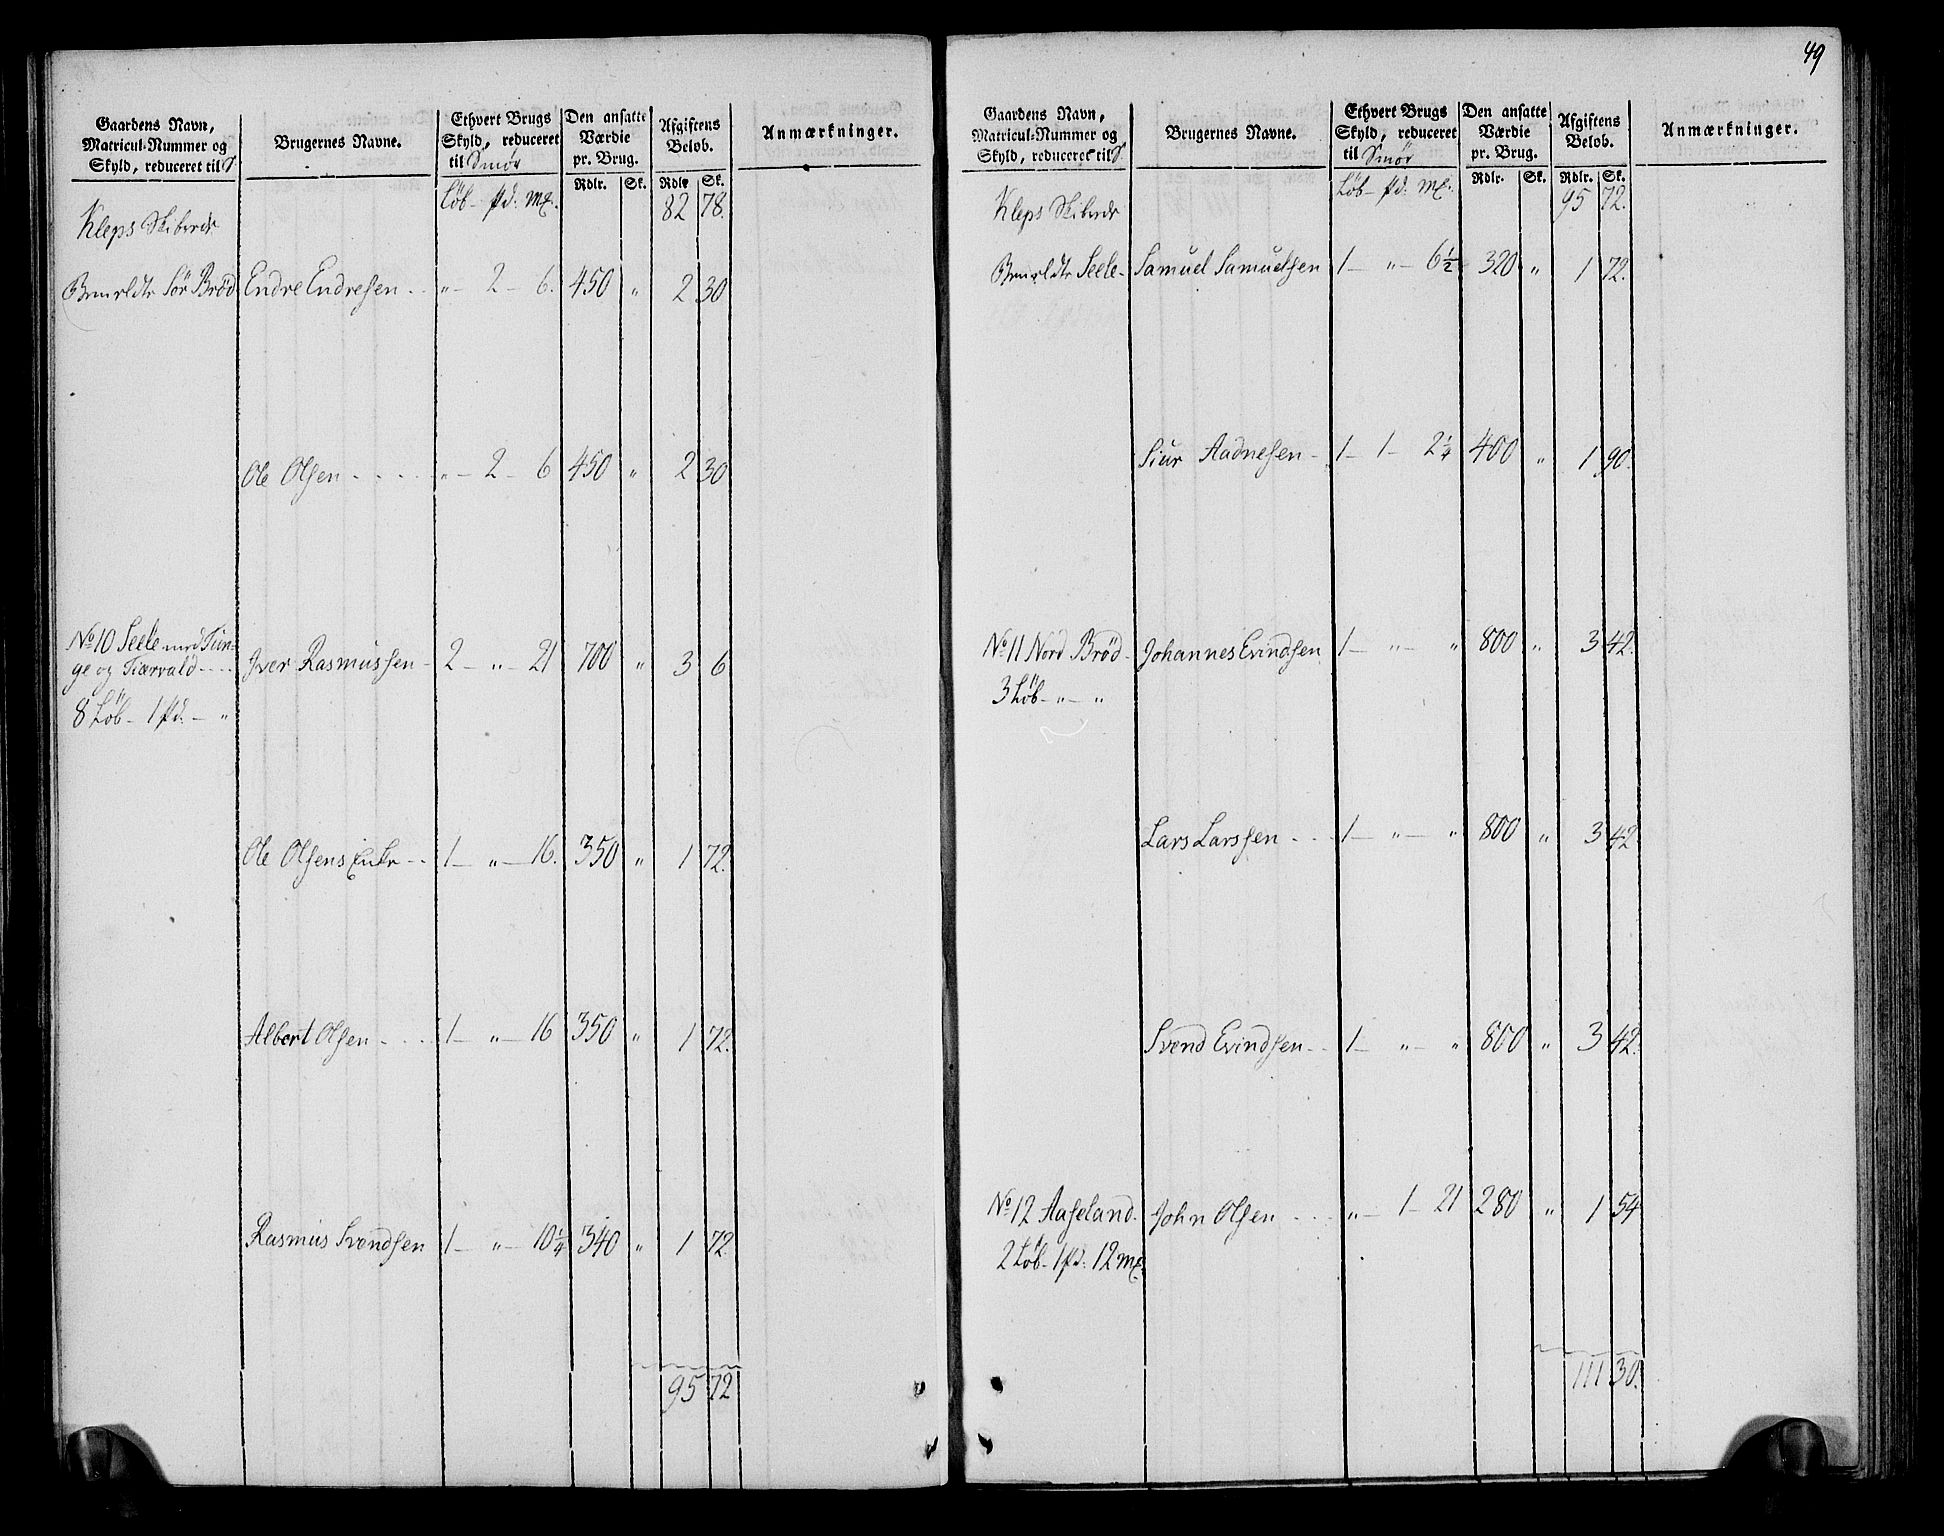 Gaardens Navn, Matricul-Nummer og Skyld, reduceret til
Brugernes Navne.
Ethvert Brugs Skyld, reduceret til Smør
Den ansatte Værdie pr. Brug.
Afgiftens Beløb.
Anmærkninger.
Rdlr. Sk. Rdlr Sk.
Kleps Skibrede Løb - pd: mk. 82 78.
Sør Brød Endre Endresen . . „ - 2 - 6. 450 „ 2 30
Ole Olsen . . . . . „ - 2 - 6 450 „ 2 30
No 10 Seele med Tun-
ge og Tiærvald . . . Iver Rasmussen - 2 - „ - 21 700 „ 3 6
8 Løb - 1 pd. - „
Ole Olsens Enke . . 1 - „ - 16. 350 „ 1 72.
Albert Olsen . . . . 1 - „ - 16 350 „ 1 72.
Rasmus Svendsen 1 - „ - 10 1/4 340 „ 1 72
95 72
49
Gaardens Navn, Matricul-Nummer og Skyld, reduceret til
Brugernes Navne.
Ethvert Brugs Skyld, reduceret til Smør
Den ansatte Værdie pr. Brug.
Afgiftens Beløb.
Anmærkninger.
Rdlr. Sk. Rdlr. Sk.
Kleps Skibrede Løb - pd: mk. 95 72.
Seele - Samuel Samuelsen 1 - „ - 6 1/2 320 „ 1 72.
Siur Aadnesen - 1 - 1 - 2 1/4 400 „ 1 90.
No 11 Nord Brød - Johannes Evindsen 1 - „ - „ 800 „ 3 42.
3 Løb - „ - „
Lars Larssen . . . 1 - „ - „ 800 „ 3 42
Svend Evindsen . . 1 - „ - „ 800 „ 3 42.
No 12 Aaseland. John Olsen . . . . „ - 1 - 21 280 „ 1 54
2 Løb - 1 pd: 12 mk.
111 30.